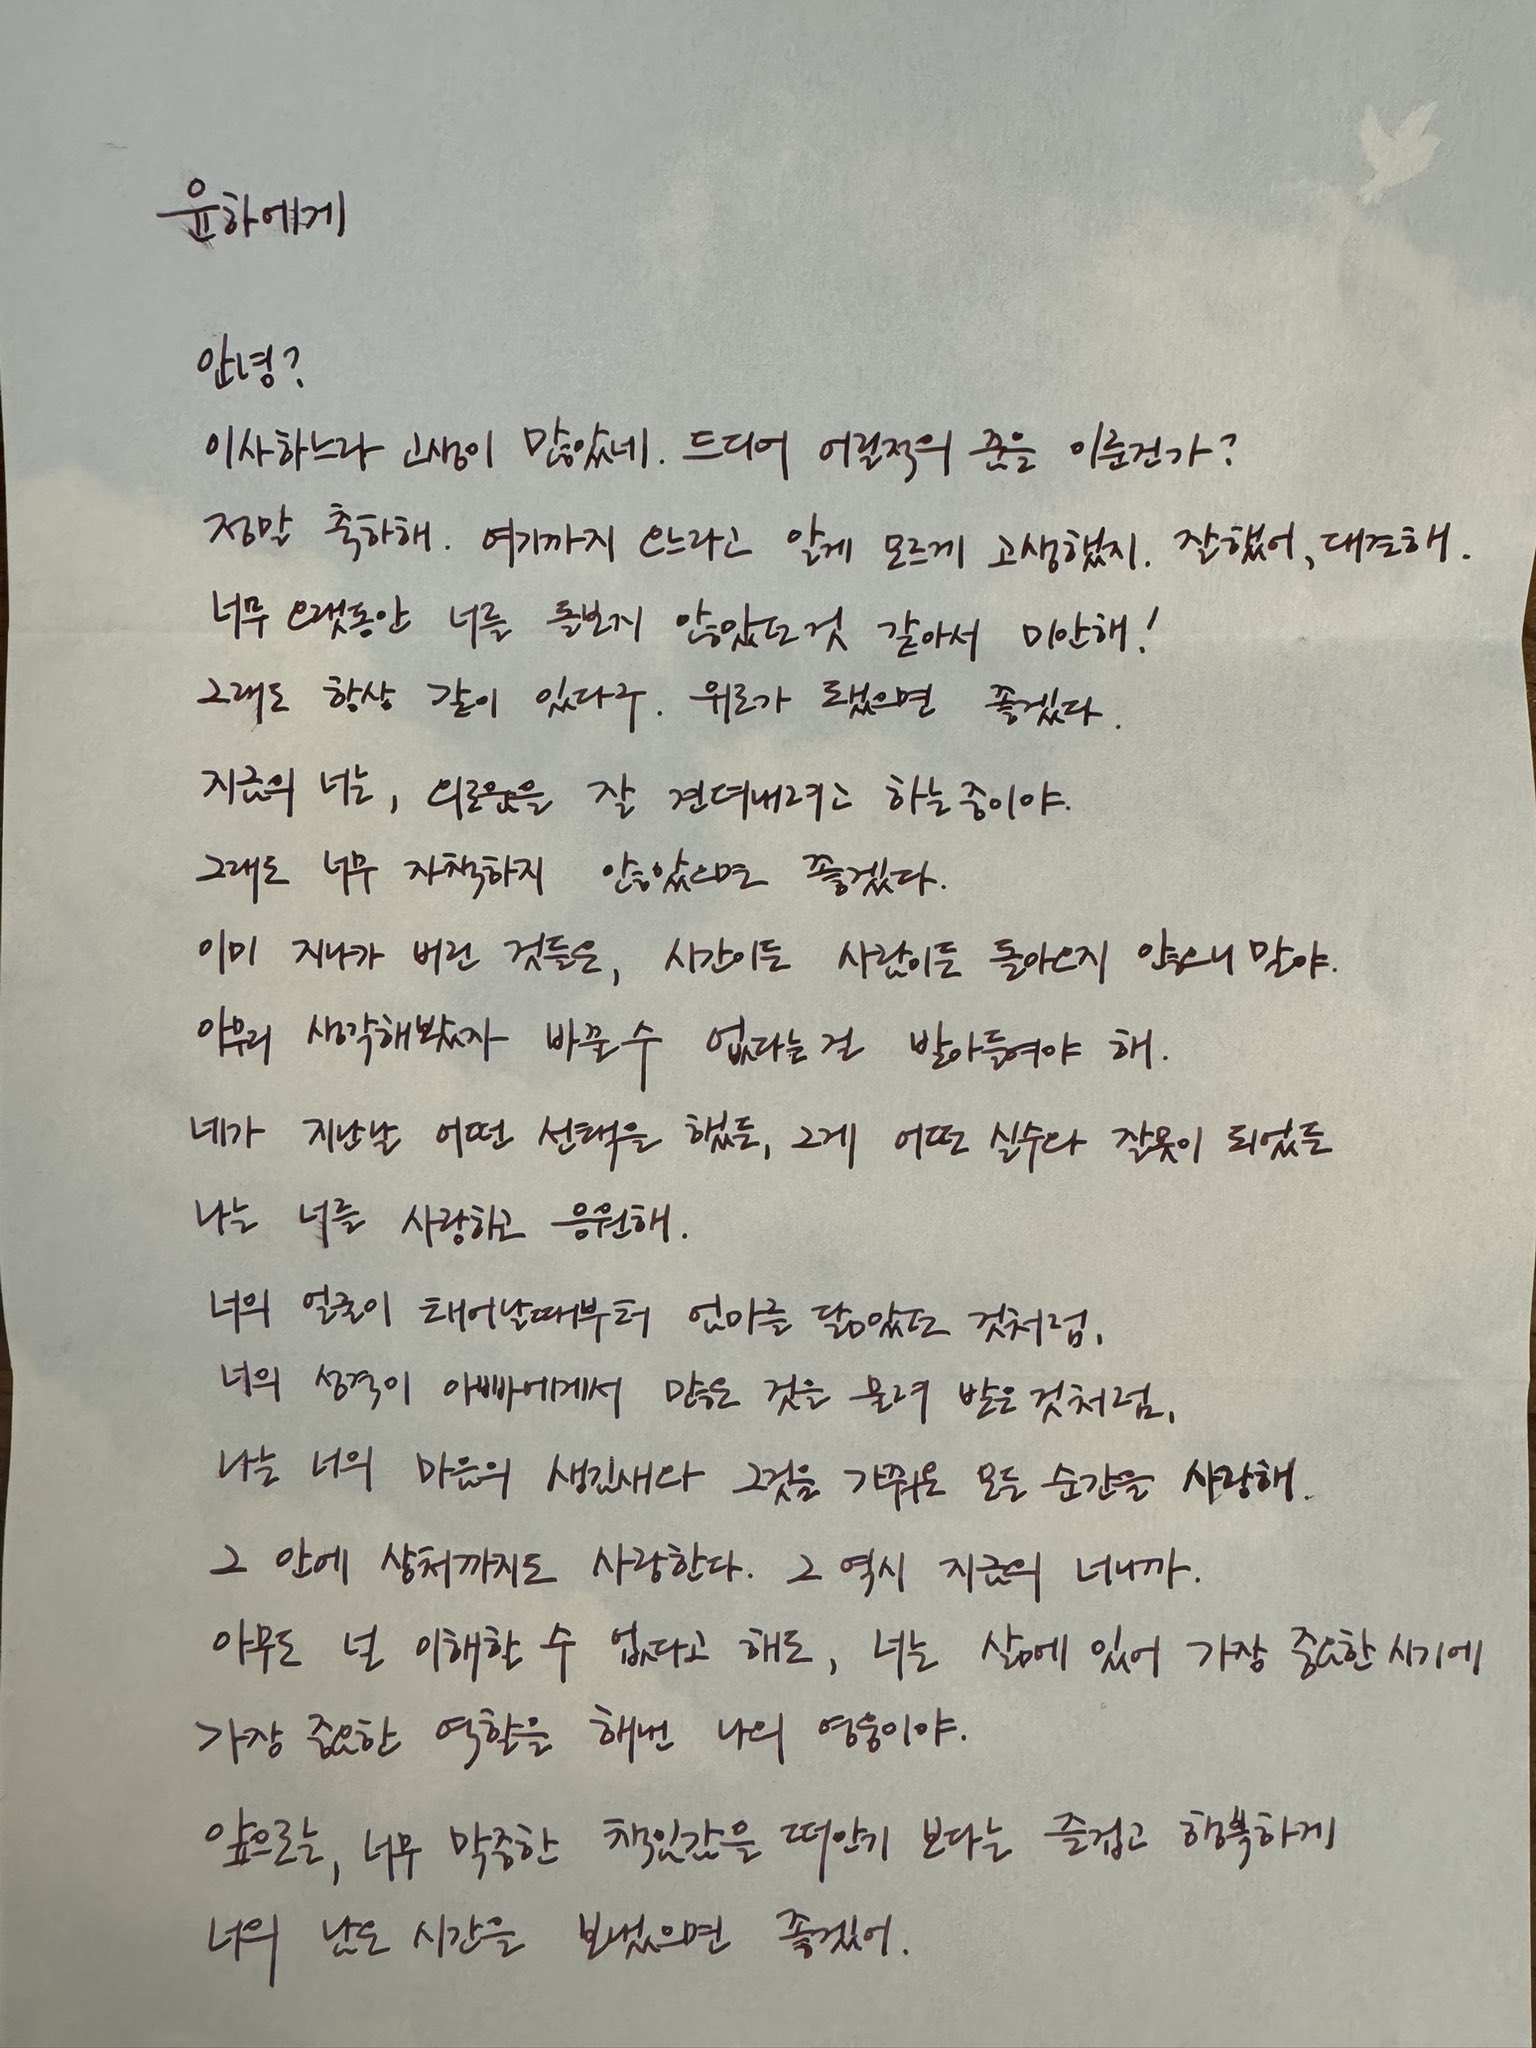 윤하에게
안녕?
이사하느라 고생이 많았네. 드디어 어릴적의 꿈을 이룬건가?
정말 축하해. 여기까지 오느라고 알게 모르게 고생했지. 잘했어, 대견해.
너무 오랫동안 너를 돌보지 않았던 것 같아서 미안해!
그래도 항상 같이 있다구. 위로가 됐으면 좋겠다.
지금의 너는, 외로움을 잘 견뎌내려고 하는 중이야.
그래도 너무 자책하지 않았으면 좋겠다.
이미 지나가 버린 것들은, 시간이든 사람이든 돌아오지 않으니 말야.
아무리 생각해봤자 바꿀 수 없다는 걸 받아들여야 해.
네가 지난날 어떤 선택을 했든, 그게 어떤 실수와 잘못이 되었든
나는 너를 사랑하고 응원해.
너의 얼굴이 태어날때부터 엄마를 닮았던 것처럼,
너의 성격이 아빠에게서 많은 것을 물려 받은 것처럼,
나는 너의 마음의 생김새와 그것을 가꿔온 모든 순간을 사랑해.
그 안에 상처까지도 사랑한다. 그 역시 지금의 너니까.
아무도 널 이해할 수 없다고 해도, 너는 삶에 있어 가장 중요한 시기에
가장 중요한 역할을 해낸 나의 영웅이야.
앞으로는, 너무 막중한 책임감을 떠안기 보다는 즐겁고 행복하게
너의 남은 시간을 보냈으면 좋겠어.